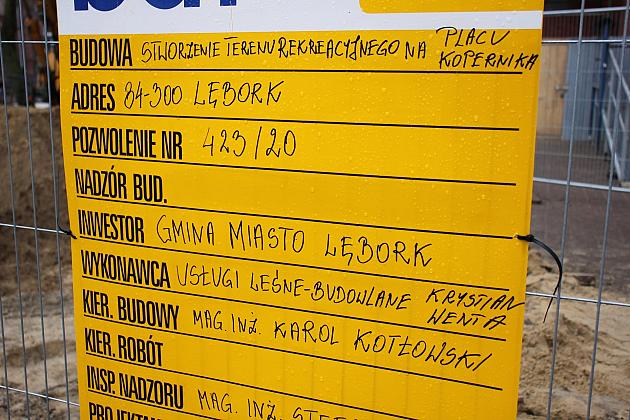 BUDOWA STWORZENIE TERENU REKREACYJNEGO NA PLACU KOPERNIKA
ADRES 84-300 LĘBORK
POZWOLENIE NR 423/20
NADZÓR BUD.
INWESTOR GMINA MIASTO LĘBORK
WYKONAWCA USŁUGI LEŚNE-BUDOWLANE KRYSTIAN WENTA
KIER. BUDOWY MAG. INŻ. KAROL KOTŁOWSKI
KIER. ROBÓT
INSP. NADZORU MAG. INŻ.